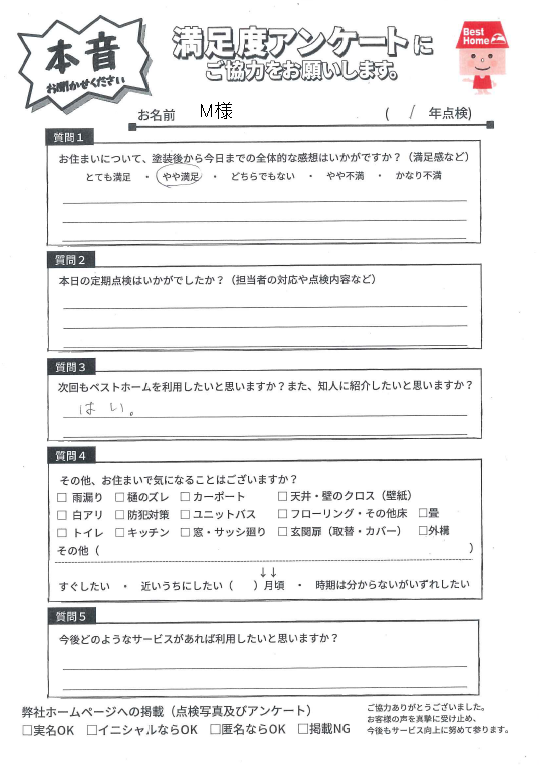 本音
お聞かせください
満足度アンケートに
ご協力をお願いします。
Best
Home
お名前 M様 ( / 年点検)
質問1
お住まいについて、塗装後から今日までの全体的な感想はいかがですか？（満足感など）
とても満足 ・ やや満足 ・ どちらでもない ・ やや不満 ・ かなり不満
質問2
本日の定期点検はいかがでしたか？（担当者の対応や点検内容など）
質問3
次回もベストホームを利用したいと思いますか？また、知人に紹介したいと思いますか？
はい。
質問4
その他、お住まいで気になることはございますか？
□ 雨漏り □ 樋のズレ □ カーポート □ 天井・壁のクロス（壁紙）
□ 白アリ □ 防犯対策 □ ユニットバス □ フローリング・その他床 □畳
□ トイレ □ キッチン □ 窓・サッシ廻り □ 玄関扉（取替・カバー） □外構
その他（ ）
↓↓
すぐしたい ・ 近いうちにしたい（ ）月頃 ・ 時期は分からないがいずれしたい
質問5
今後どのようなサービスがあれば利用したいと思いますか？
弊社ホームページへの掲載（点検写真及びアンケート）
□実名OK □イニシャルならOK □匿名ならOK □掲載NG
ご協力ありがとうございました。
お客様の声を真摯に受け止め、
今後もサービス向上に努めて参ります。